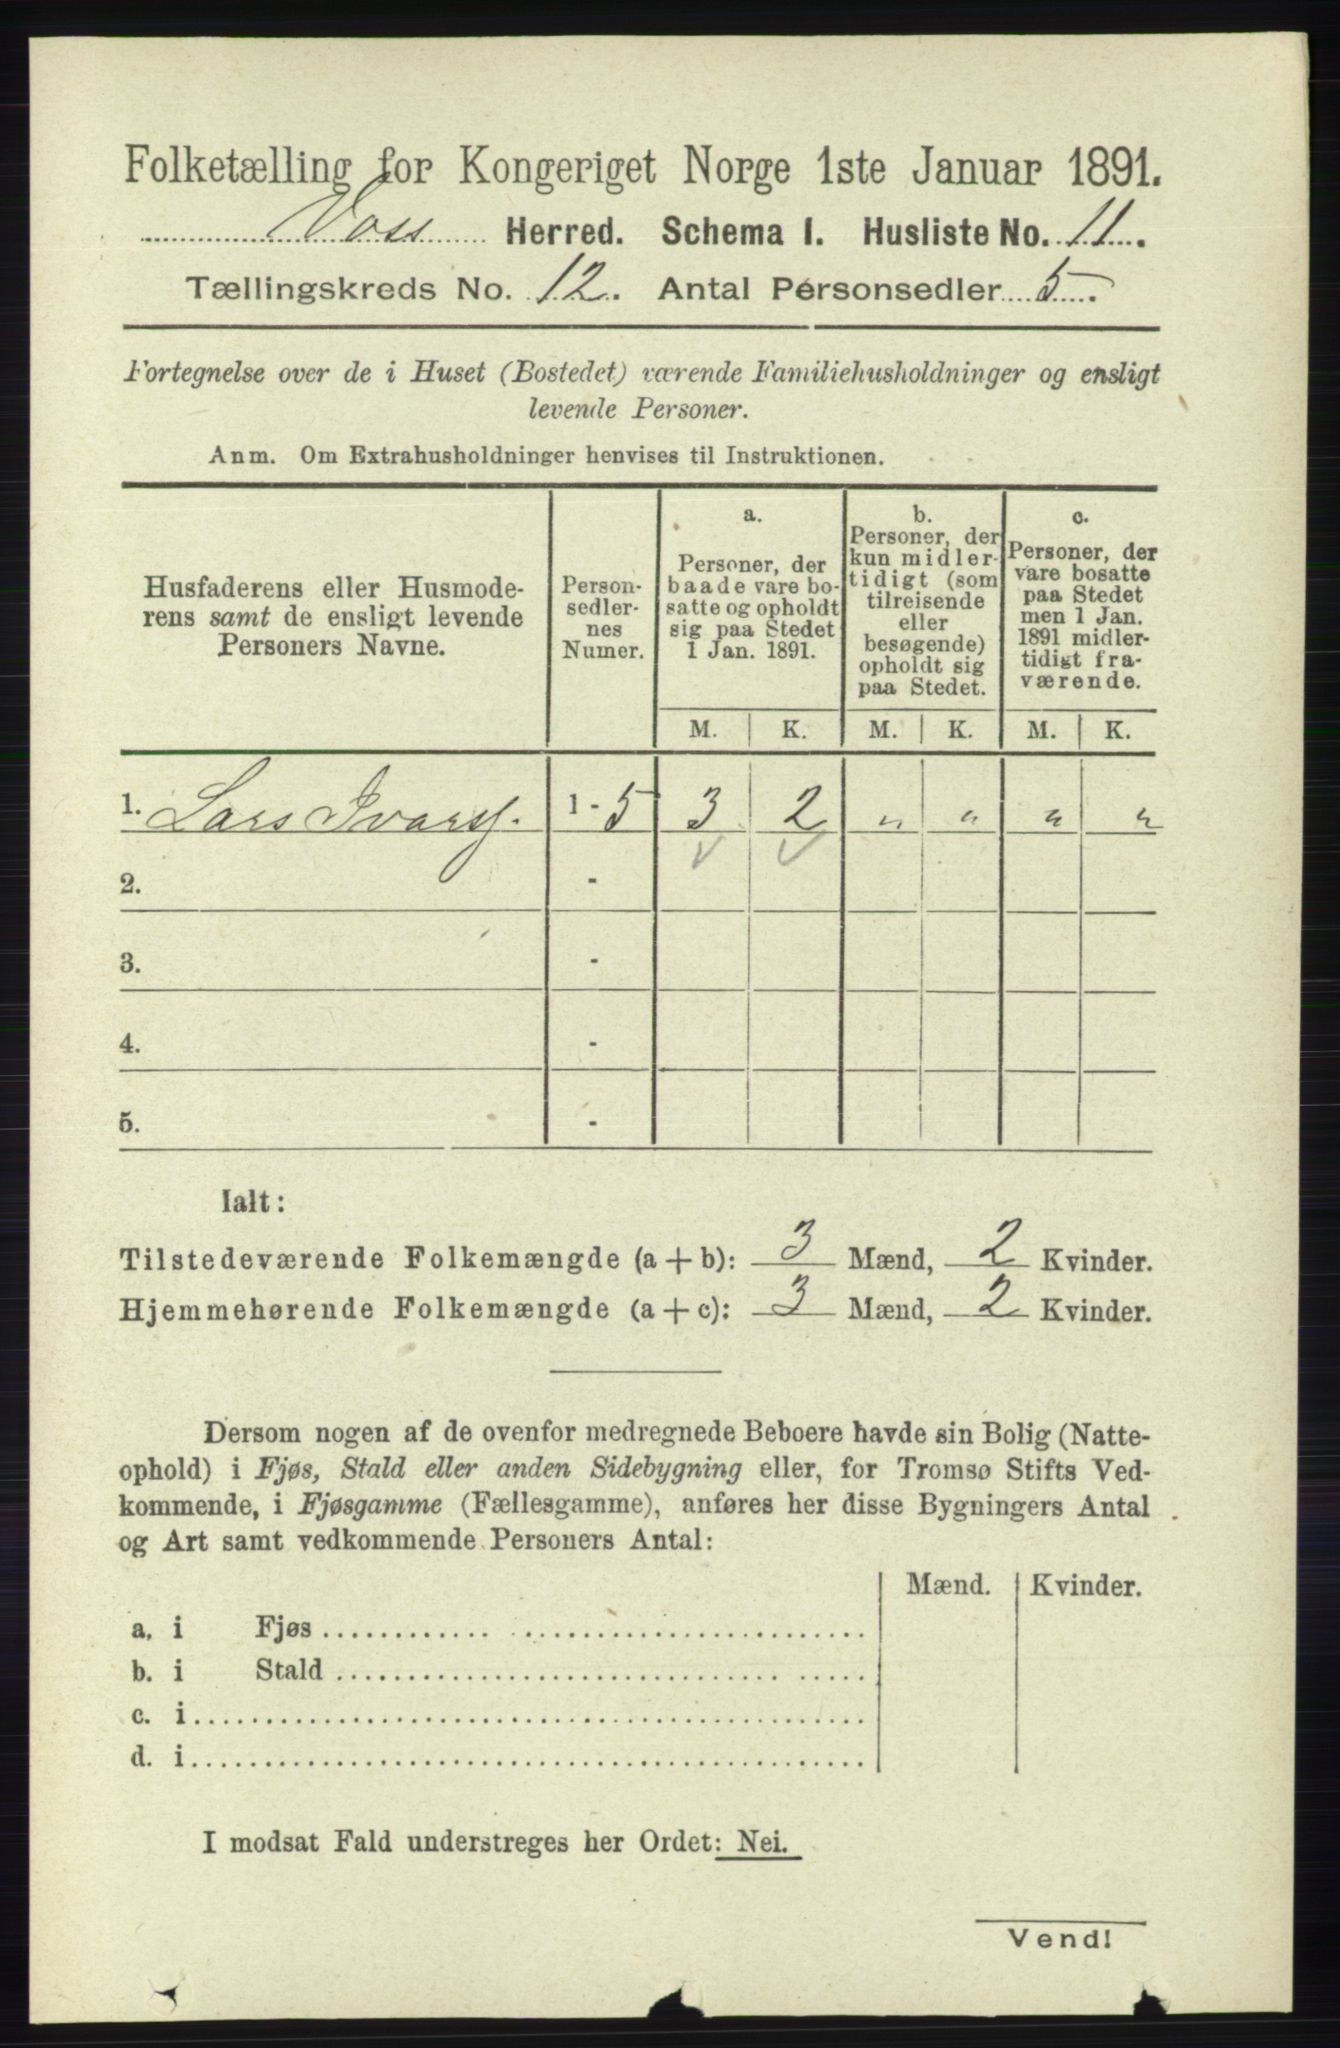 Folketælling for Kongeriget Norge 1ste Januar 1891.
Voss Herred. Schema I. Husliste No. 11.
Tællingskreds No. 12. Antal Personsedler 5.
Fortegnelse over de i Huset (Bostedet) værende Familiehusholdninger og ensligt
levende Personer.
Anm. Om Extrahusholdninger henvises til Instruktionen.
Husfaderens eller Husmode-
rens samt de ensligt levende
Personers Navne.
Person-
sedler-
nes
Numer.
a.
Personer, der
baade vare bo-
satte og opholdt
sig paa Stedet
1 Jan. 1891.
b.
Personer, der
kun midler-
tidigt (som
tilreisende
eller
besøgende)
opholdt sig
paa Stedet.
c.
Personer, der
vare bosatte
paa Stedet
men 1 Jan.
1891 midler-
tidigt fra-
værende.
M. K. M. K. M. K.
1. Lars Ivars. 1 - 5 3 2 " " " "
2. -
3. -
4. -
5. -
Ialt:
Tilstedeværende Folkemængde (a + b): 3 Mænd, 2 Kvinder.
Hjemmehørende Folkemængde (a + c): 3 Mænd, 2 Kvinder.
Dersom nogen af de ovenfor medregnede Beboere havde sin Bolig (Natte-
ophold) i Fjøs, Stald eller anden Sidebygning eller, for Tromsø Stifts Ved-
kommende, i Fjøsgamme (Fællesgamme), anføres her disse Bygningers Antal
og Art samt vedkommende Personers Antal:
Mænd. Kvinder.
a. i Fjøs
b. i Stald
c. i
d. i
I modsat Fald understreges her Ordet: Nei.
Vend!